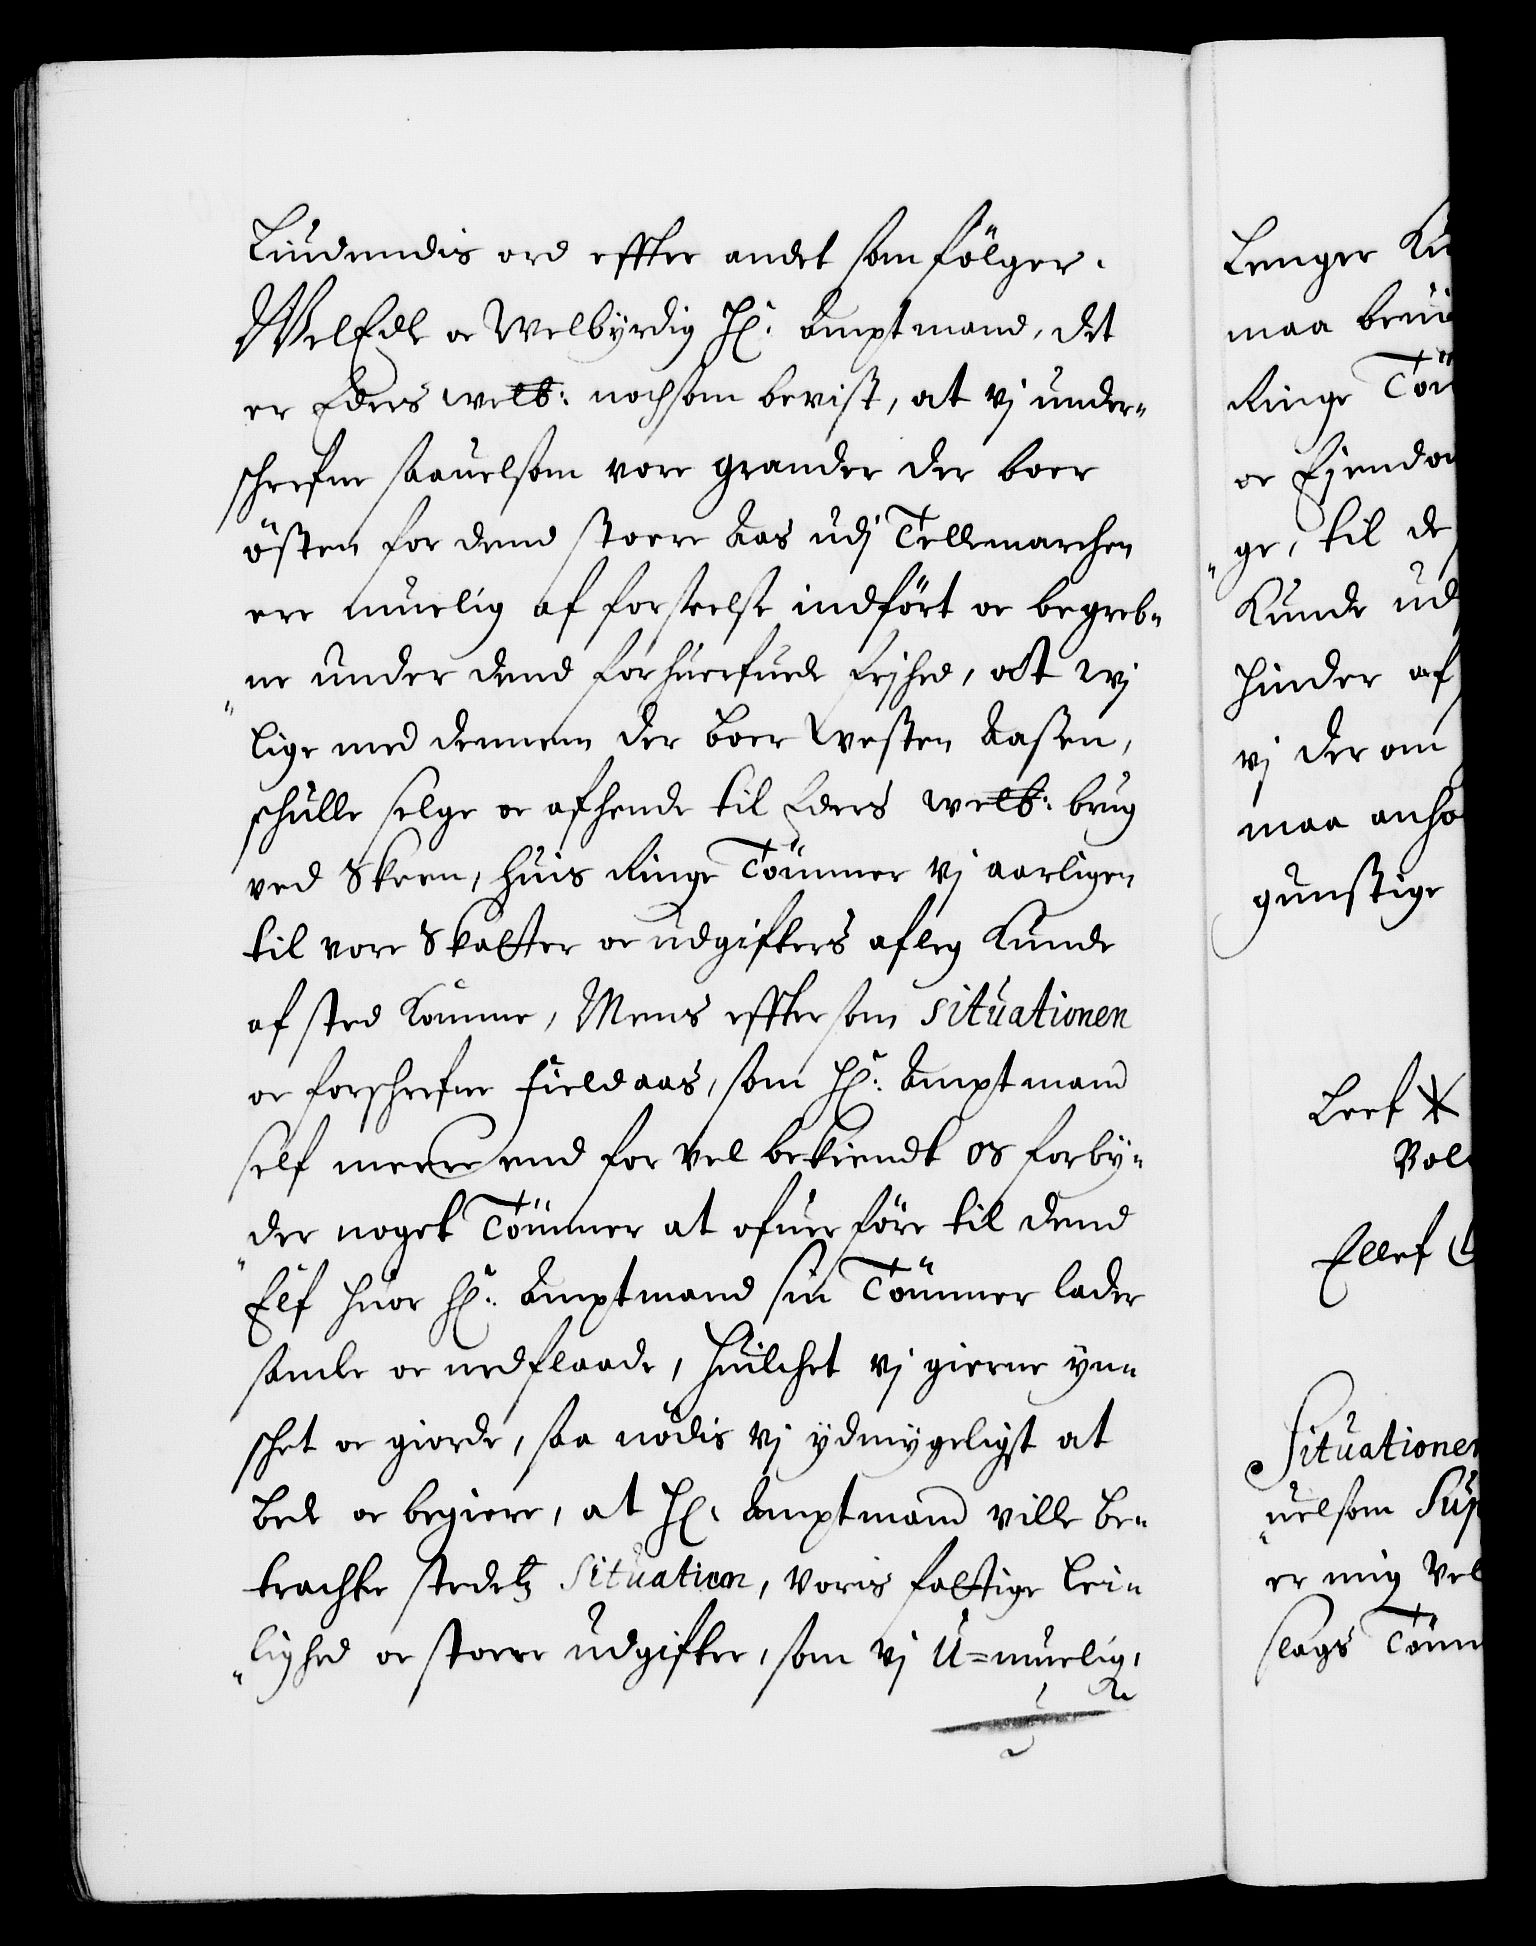 Liudendis ord effter andet som fölger.
WelEdle oc Welbÿrdig Hr: Amptmand, det
er Eders welb: nochsom bevist, at vj under-
schrefne saauelsom vore grander der boer
östen for dend stoere Aas udj Tellemarchen
ere muelig af forseelse indfört oc begreb-
ne under dend forhuerfuede frjhed, att wj
lige med dennem der boer westen Aasen,
schulle selge oc afhende til Eders welb: brug
ved Skeen, huis Ringe Tömmer vj aarligen
til vore Skatter oc udgifters afleg Kunde
af sted komme, Mens effter som situationen
oc forschrefne fieldaas, som Hr: Amptmand
self meere end for vel bekiendt os forbÿ-
der noget Tömmer at ofuerföre til dend
Elf huor Hr: Amptmand sin Tömmer lader
samle oc nedflaade, huilchet vj gierne ÿn-
schet oc giorde, saa nödis vj ÿdmÿgeligst at
bede oc begiere, at Hr: Amptmand ville be-
tragte stedetz Situation, voris fattige lei-
lighed oc stoere udgifter, som vj U=muelig,
Lenger Ku
maa bru
Ringe Töm
oc Ejendom
ge, til de
Kunde ud
hinder af
vj der om
maa anho
gunstige
Leef
Bol
Ellef
Situationen
uelsom Sup
er mig vel
slags Tömm